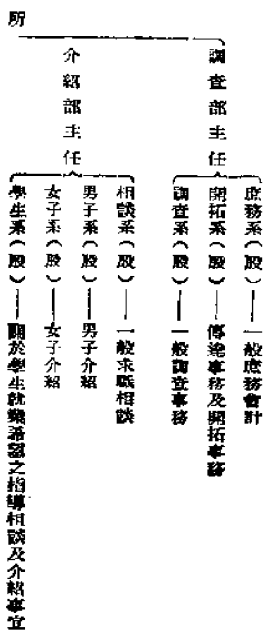 調查部主任
庶務系(股)——一般庶務會計
開拓系(股)——傳達事務及開拓事務
調查系(股)——一般調查事務
介紹部主任
相談系(股)——一般求職相談
男子系(股)——男子介紹
女子系(股)——女子介紹
學生系(股)——關於學生就業希望之指導相談及介紹事宜
所